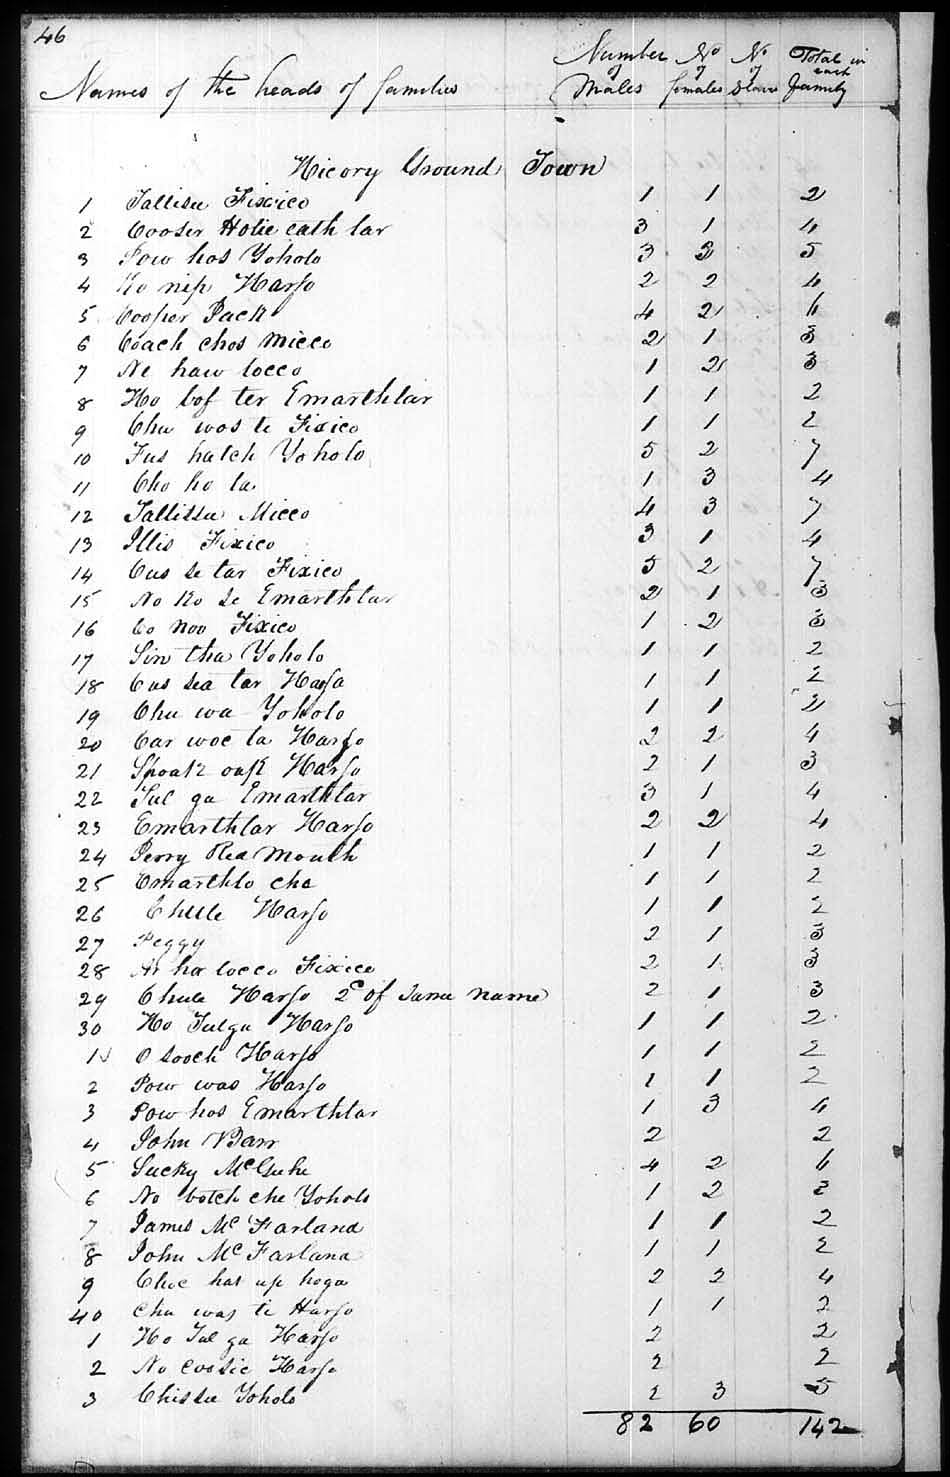 46
Names of the heads of families Number of Males No of females No of Slaves Total in each family
Hicory Ground Town
1 Tallisee Fixico 1 1 2
2 Cooser Holie cath lar 3 1 4
3 Pow hos Yoholo 3 2 5
4 Ko nip Harjo 2 2 4
5 Cooper Jack 4 2 6
6 Coach chos Micco 2 1 3
7 Ne haw locco 1 2 3
8 Ho bof ter Emarthlar 1 1 2
9 Chu wos te Fixico 1 1 2
10 Fus hatch Yoholo 5 2 7
11 Cho ho la 1 3 4
12 Tallissee Micco 4 3 7
13 Illis Fixico 3 1 4
14 Cus se tar Fixico 5 2 7
15 No Ko se Emarthlar 2 1 3
16 Co noo Fixico 1 2 3
17 Sin tha Yoholo 1 1 2
18 Cus sea tar Harjo 1 1 2
19 Chu wa Yoholo 1 1 2
20 Car woc la Harjo 2 2 4
21 Spoak oak Harjo 2 1 3
22 Tul ga Emarthlar 3 1 4
23 Emarthlar Harjo 2 2 4
24 Perry Red Mouth 1 1 2
25 Emarthlo che 1 1 2
26 Chule Harjo 1 1 2
27 Peggy 2 1 3
28 Ar ha locco Fixico 2 1 3
29 Chule Harjo 2d of same name 2 1 3
30 Ho Tulga Harjo 1 1 2
1 O sooch Harjo 1 1 2
2 Pow was Harjo 1 1 2
3 Pow hos Emarthlar 1 3 4
4 John Barr 2 2
5 Sucky McGuhe 4 2 6
6 No botch che Yoholo 1 2 3
7 James Mc Farland 1 1 2
8 John Mc Farland 1 1 2
9 Choc hat up hoga 2 2 4
40 Chu was te Harjo 1 1 2
1 Ho Tul ga Harjo 2 2
2 No cossic Harjo 2 2
3 Chissee Yoholo 2 3 5
82 60 142